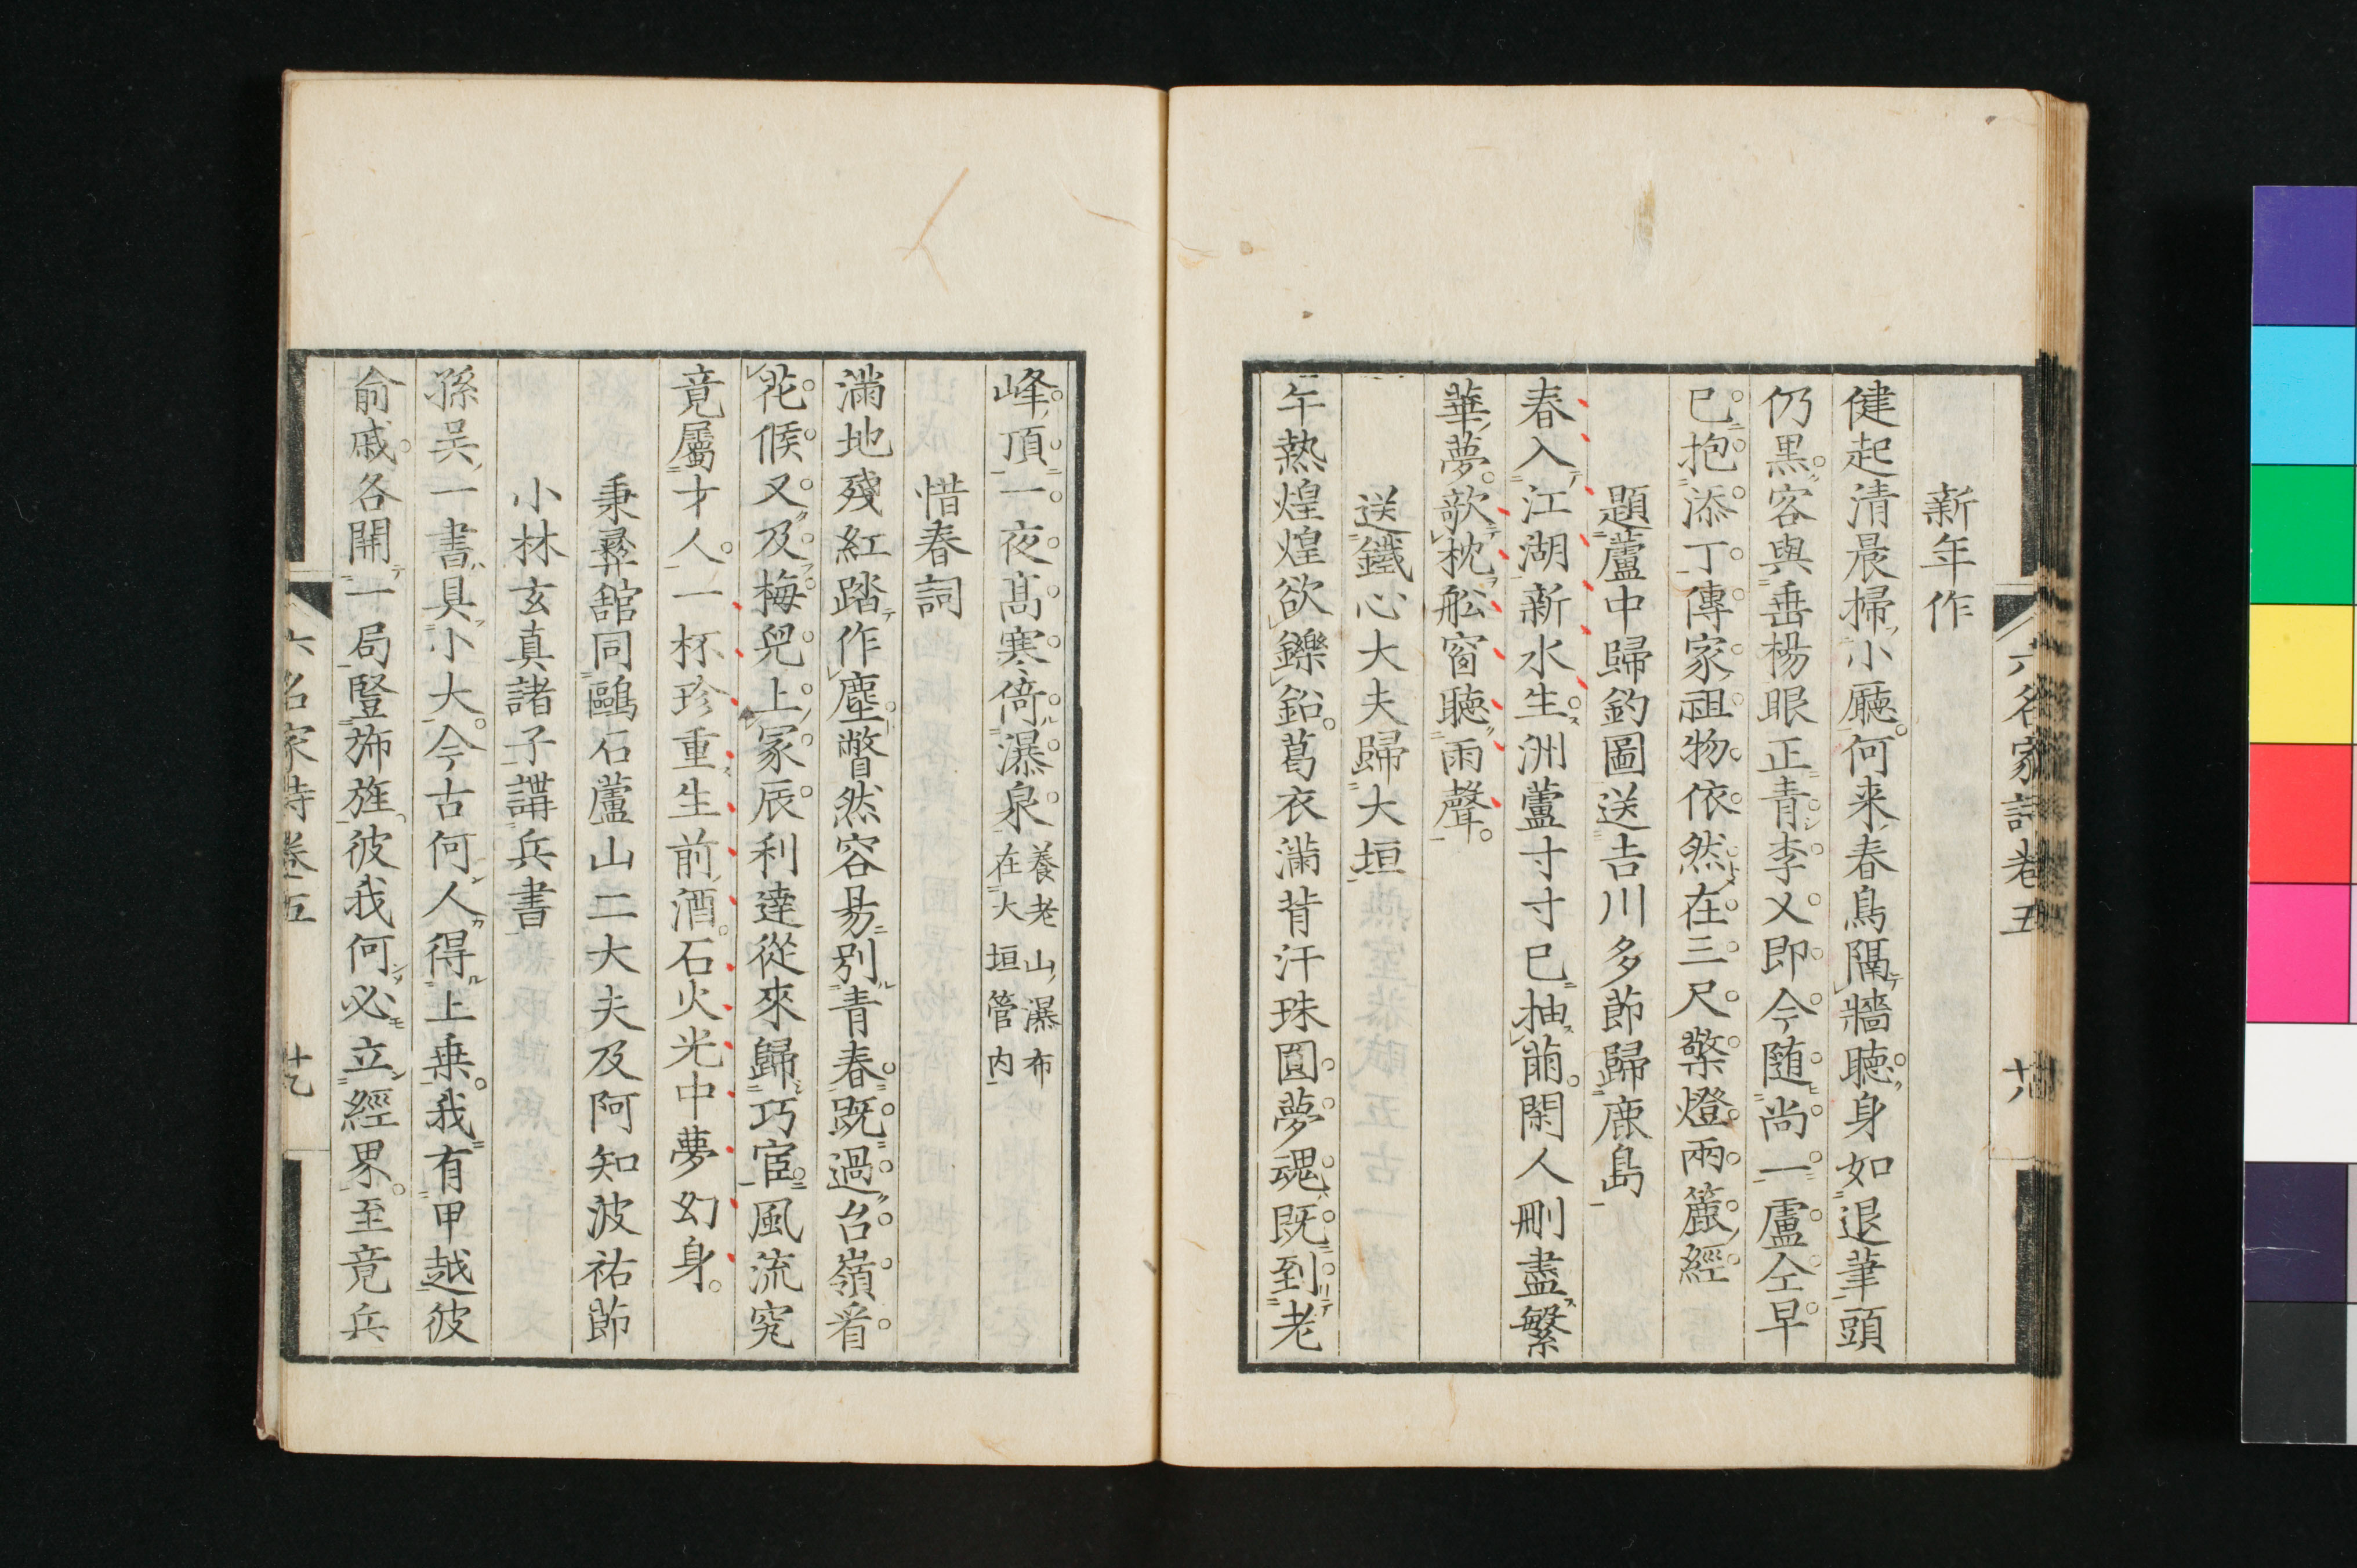 新年作
健起清晨掃小廳何来春鳥隔牆聽身如退筆頭
仍黒客與垂楊眼正青李乂即今随尚一盧仝早
已抱添丁傳家祖物依然在三尺檠燈兩簏經
題蘆中歸釣圖送吉川多節歸鹿島
春入江湖新水生洲蘆寸寸已抽萠閑人刪盡繁
華夢欹枕舩窗聴雨聲
送鐵心大夫歸大垣
午熱煌煌欲鑠鉛葛衣滿背汗珠圓夢魂既到老
六名家詩卷五
十八
峰頂一夜髙寒倚瀑泉
養老山瀑布
在大垣管内
惜春詞
滿地殘紅踏作塵瞥然容易別青春既過台嶺看
花候又及梅兒上冢辰利達從來歸巧宦風流究
竟屬才人一杯珍重生前酒石火光中夢幻身
秉彛舘同鷗石蘆山二大夫及阿知波祐節
小林玄真諸子講兵書
孫吴一書具小大今古何人得上乗我有甲越彼
俞戚各開一局豎斾旌彼我何必立經界至竟兵
六名家詩卷五
十九